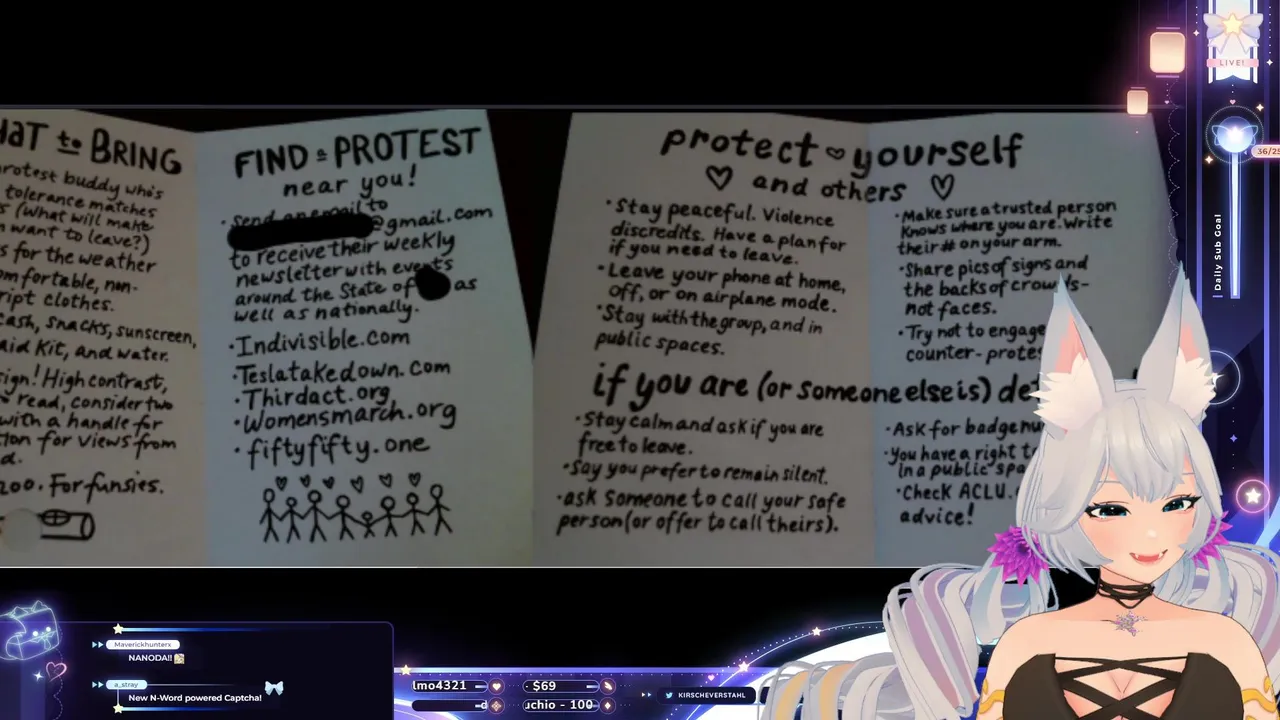 HAT to BRING
rotest buddy who's
tolerance matches
(What will make
want to leave?)
s for the weather
omfortable, non-
ript clothes.
cash, snacks, sunscreen,
aid Kit, and water.
ign! High contrast,
read, consider two
with a handle for
ion for views from
d.
zoo. For funsies.
FIND a PROTEST
near you!
• Send an email to
@gmail.com
to receive their weekly
newsletter with events
around the State of as
well as nationally.
• Indivisible.com
• Teslatakedown.com
• Thirdact.org
• Womensmarch.org
• fiftyfifty.one
protect yourself
and others
• Stay peaceful. Violence
discredits. Have a plan for
if you need to leave.
• Leave your phone at home,
off, or on airplane mode.
• Stay with the group, and in
public spaces.
• Make sure a trusted person
knows where you are. Write
their # on your arm.
• Share pics of signs and
the backs of crowds-
not faces.
• Try not to engage
counter-protes
if you are (or someone else is) de
• Stay calm and ask if you are
free to leave.
• Say you prefer to remain silent.
• ask someone to call your safe
person (or offer to call theirs).
• Ask for badge nu
• You have a right t
in a public spa
• Check ACLU.
advice!
LIVE!
36/25
Daily Sub Goal
Maverickhunterx
NANODA!!
a_stray
New N-Word powered Captcha!
lmo4321
$69
uchio - 100
KIRSCHEVERSTAHL